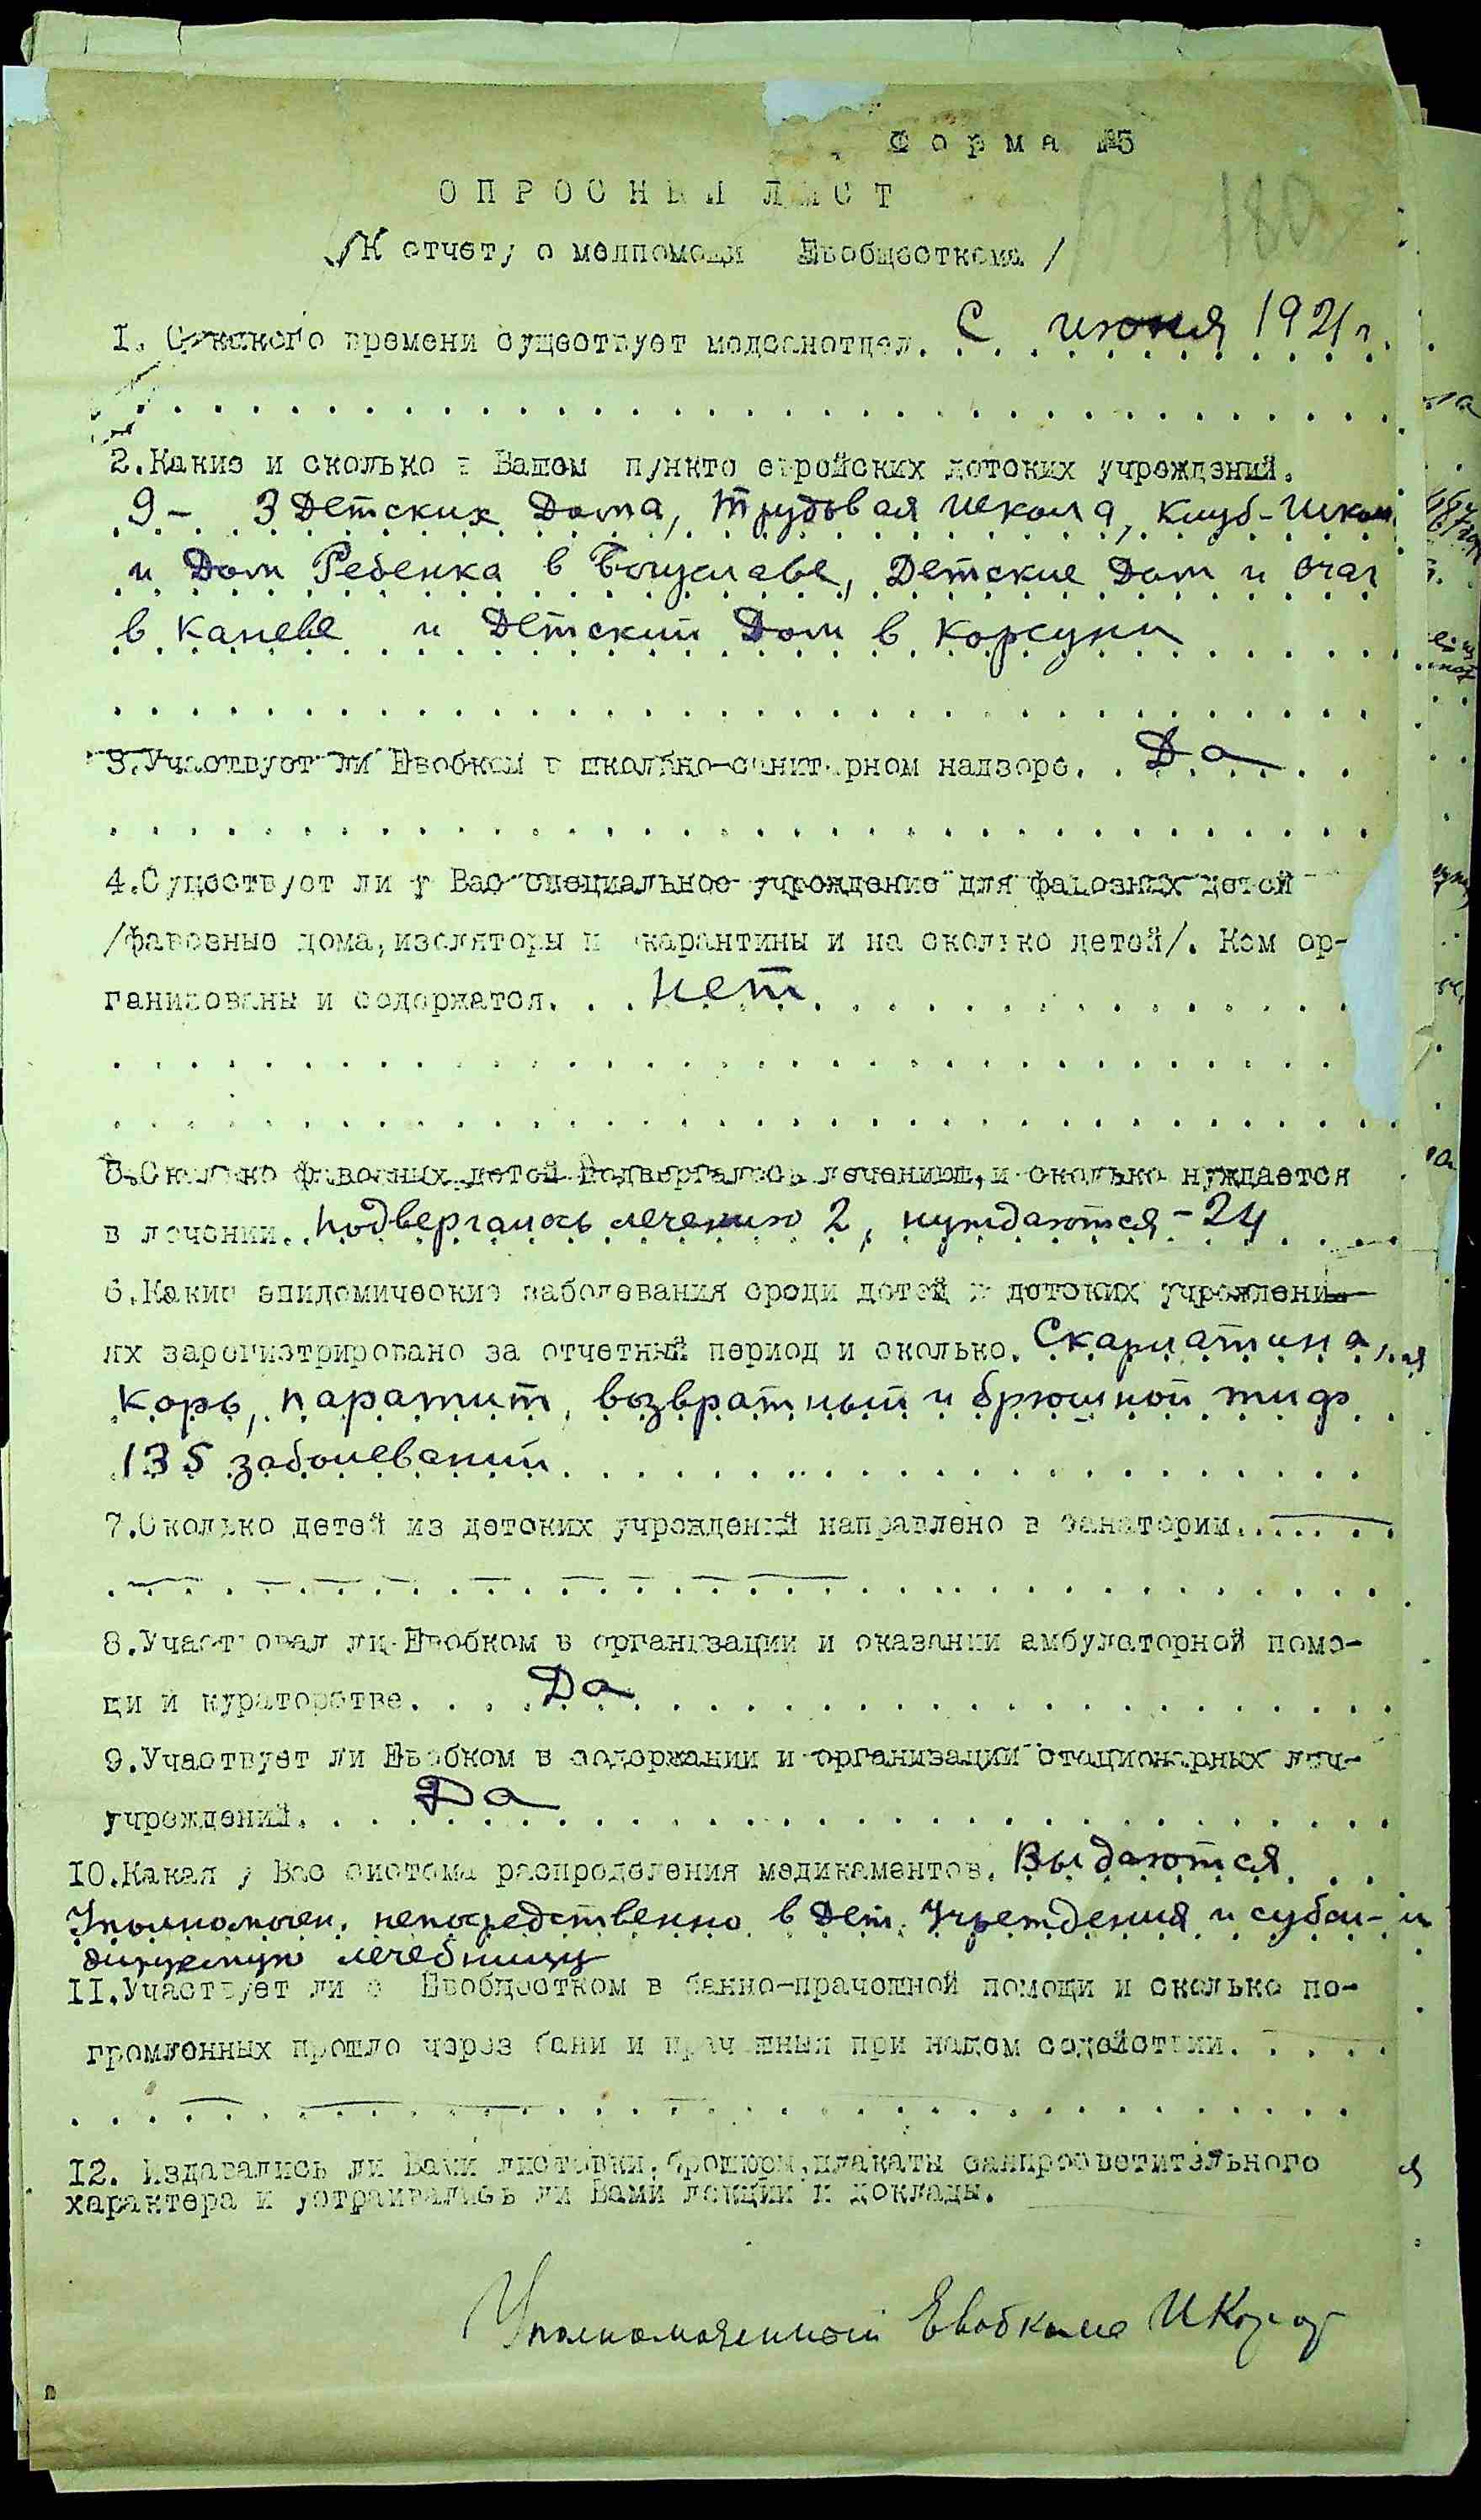 Форма №5
ОПРОСНЫЙ ЛИСТ
/К отчету о медпомощи Евобщесткома/
1. С какого времени существует медсанотдел. С июня 1921 г.
2.Какие и сколько в Вашем пункте еврейских детских учреждений.
9 – 3 Детских Дома, трудовая школа, клуб-школ
и Дом Ребенка в Богуславе, Детские Дом и очаг
в Каневе и Детский Дом в Корсуни
3.Участвует ли Евобком в школьно-санитарном надзоре. . Да
4.Существует ли у Вас специальное учреждение для фавозных детей
/фавозные дома, изоляторы и карантины и на сколько детей/. Кем ор-
ганизованы и содержатся. . . нет
5.Сколько фавозных детей подвергалось лечению, и сколько нуждается
в лечении. Подвергалось лечению 2, нуждаются – 24
6.Какие эпидемические заболевания среди детей в детских учреждени-
ях зарегистрировано за отчетный период и сколько. Скарлатина,
Корь, паратит, возвратный и брюшной тиф
135 заболеваний
7.Сколько детей из детских учреждений направлено в санатории.
8.Участвовал ли Евобком в организации и оказании амбулаторной помо-
щи и кураторстве. . . . Да
9.Участвует ли Евобком в содержании и организации стационарных леч-
учреждений. . . . Да
10.Какая у Вас система распределения медикаментов. Выдаются
Уполномочен. непосредственно в Дет. Учреждения и субси-
дируемую лечебницу
11.Участвует ли Евобщестком в банно-прачешной помощи и сколько по-
громленных прошло через бани и прачешныя при нашем содействии.
12. Издавались ли Вами листовки, брошюры, плакаты санпросветительного
характера и устраивались ли Вами лекции и доклады.
Уполномоченный Евобкома И